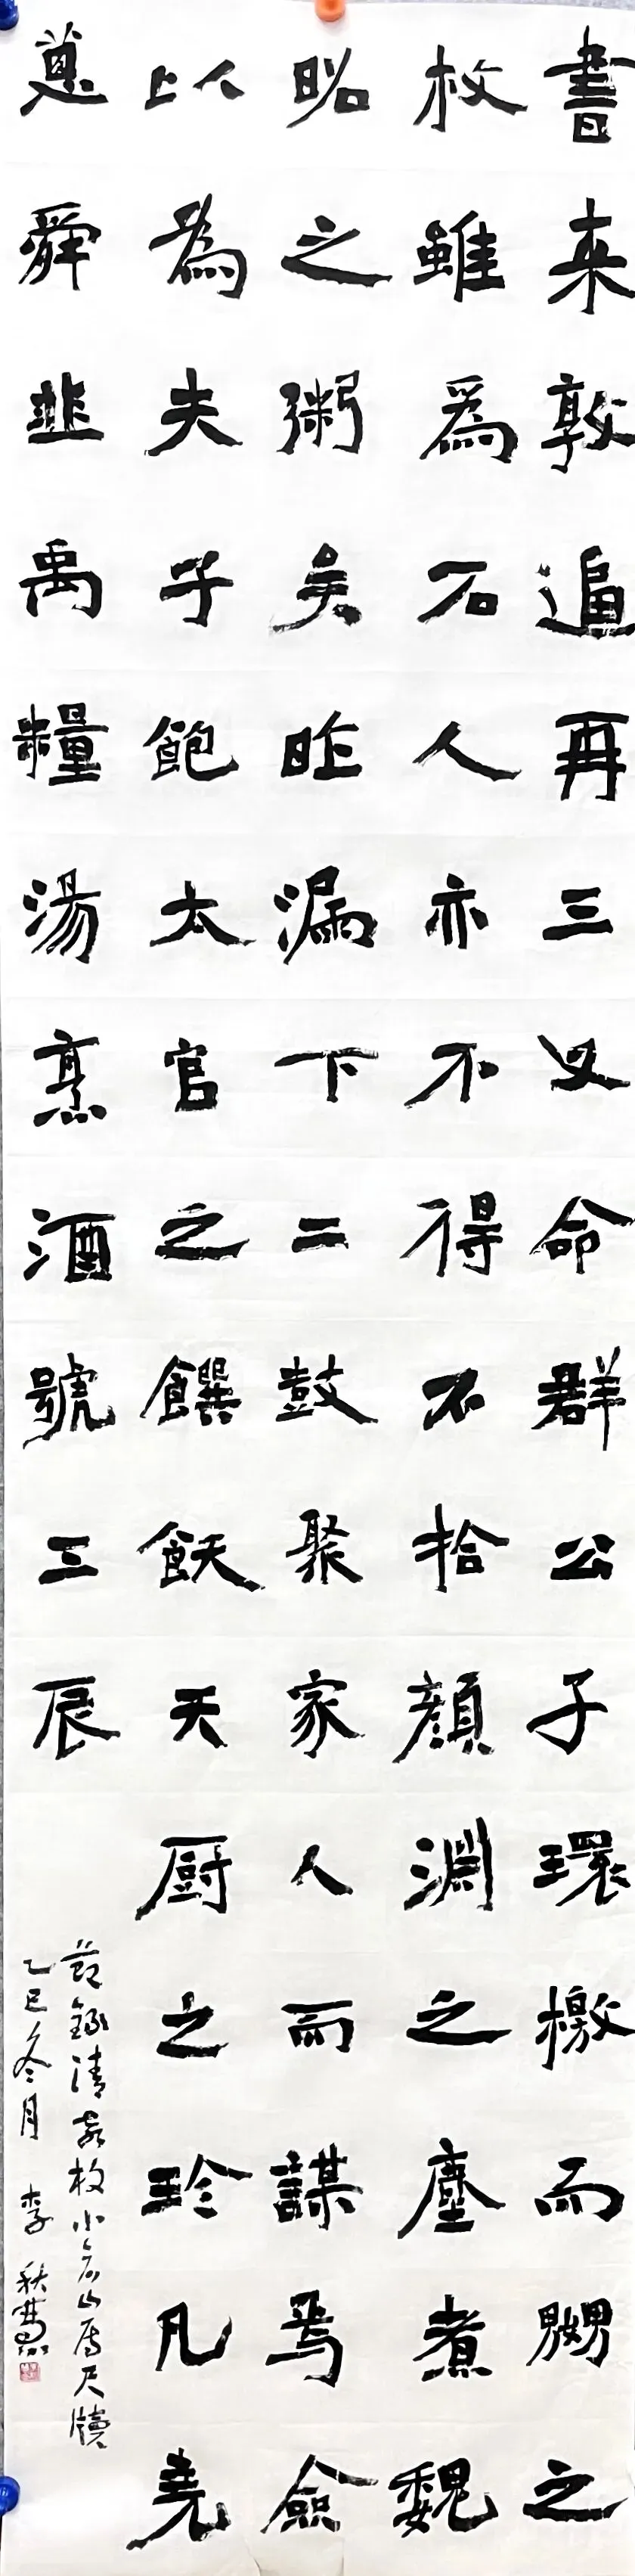 書来敦逼再三又命群公子環檄而嬲之
枚雖爲石人亦不得不拾顔淵之塵煮魏
昭之粥矣昨漏下二鼓聚家人而謀焉僉
以人為夫子飽太官之饌飫天厨之珍凡堯
舜韭禹糧湯烹酒號三辰
節錄清袁枚小倉山房尺牘
乙巳冬月 李秋